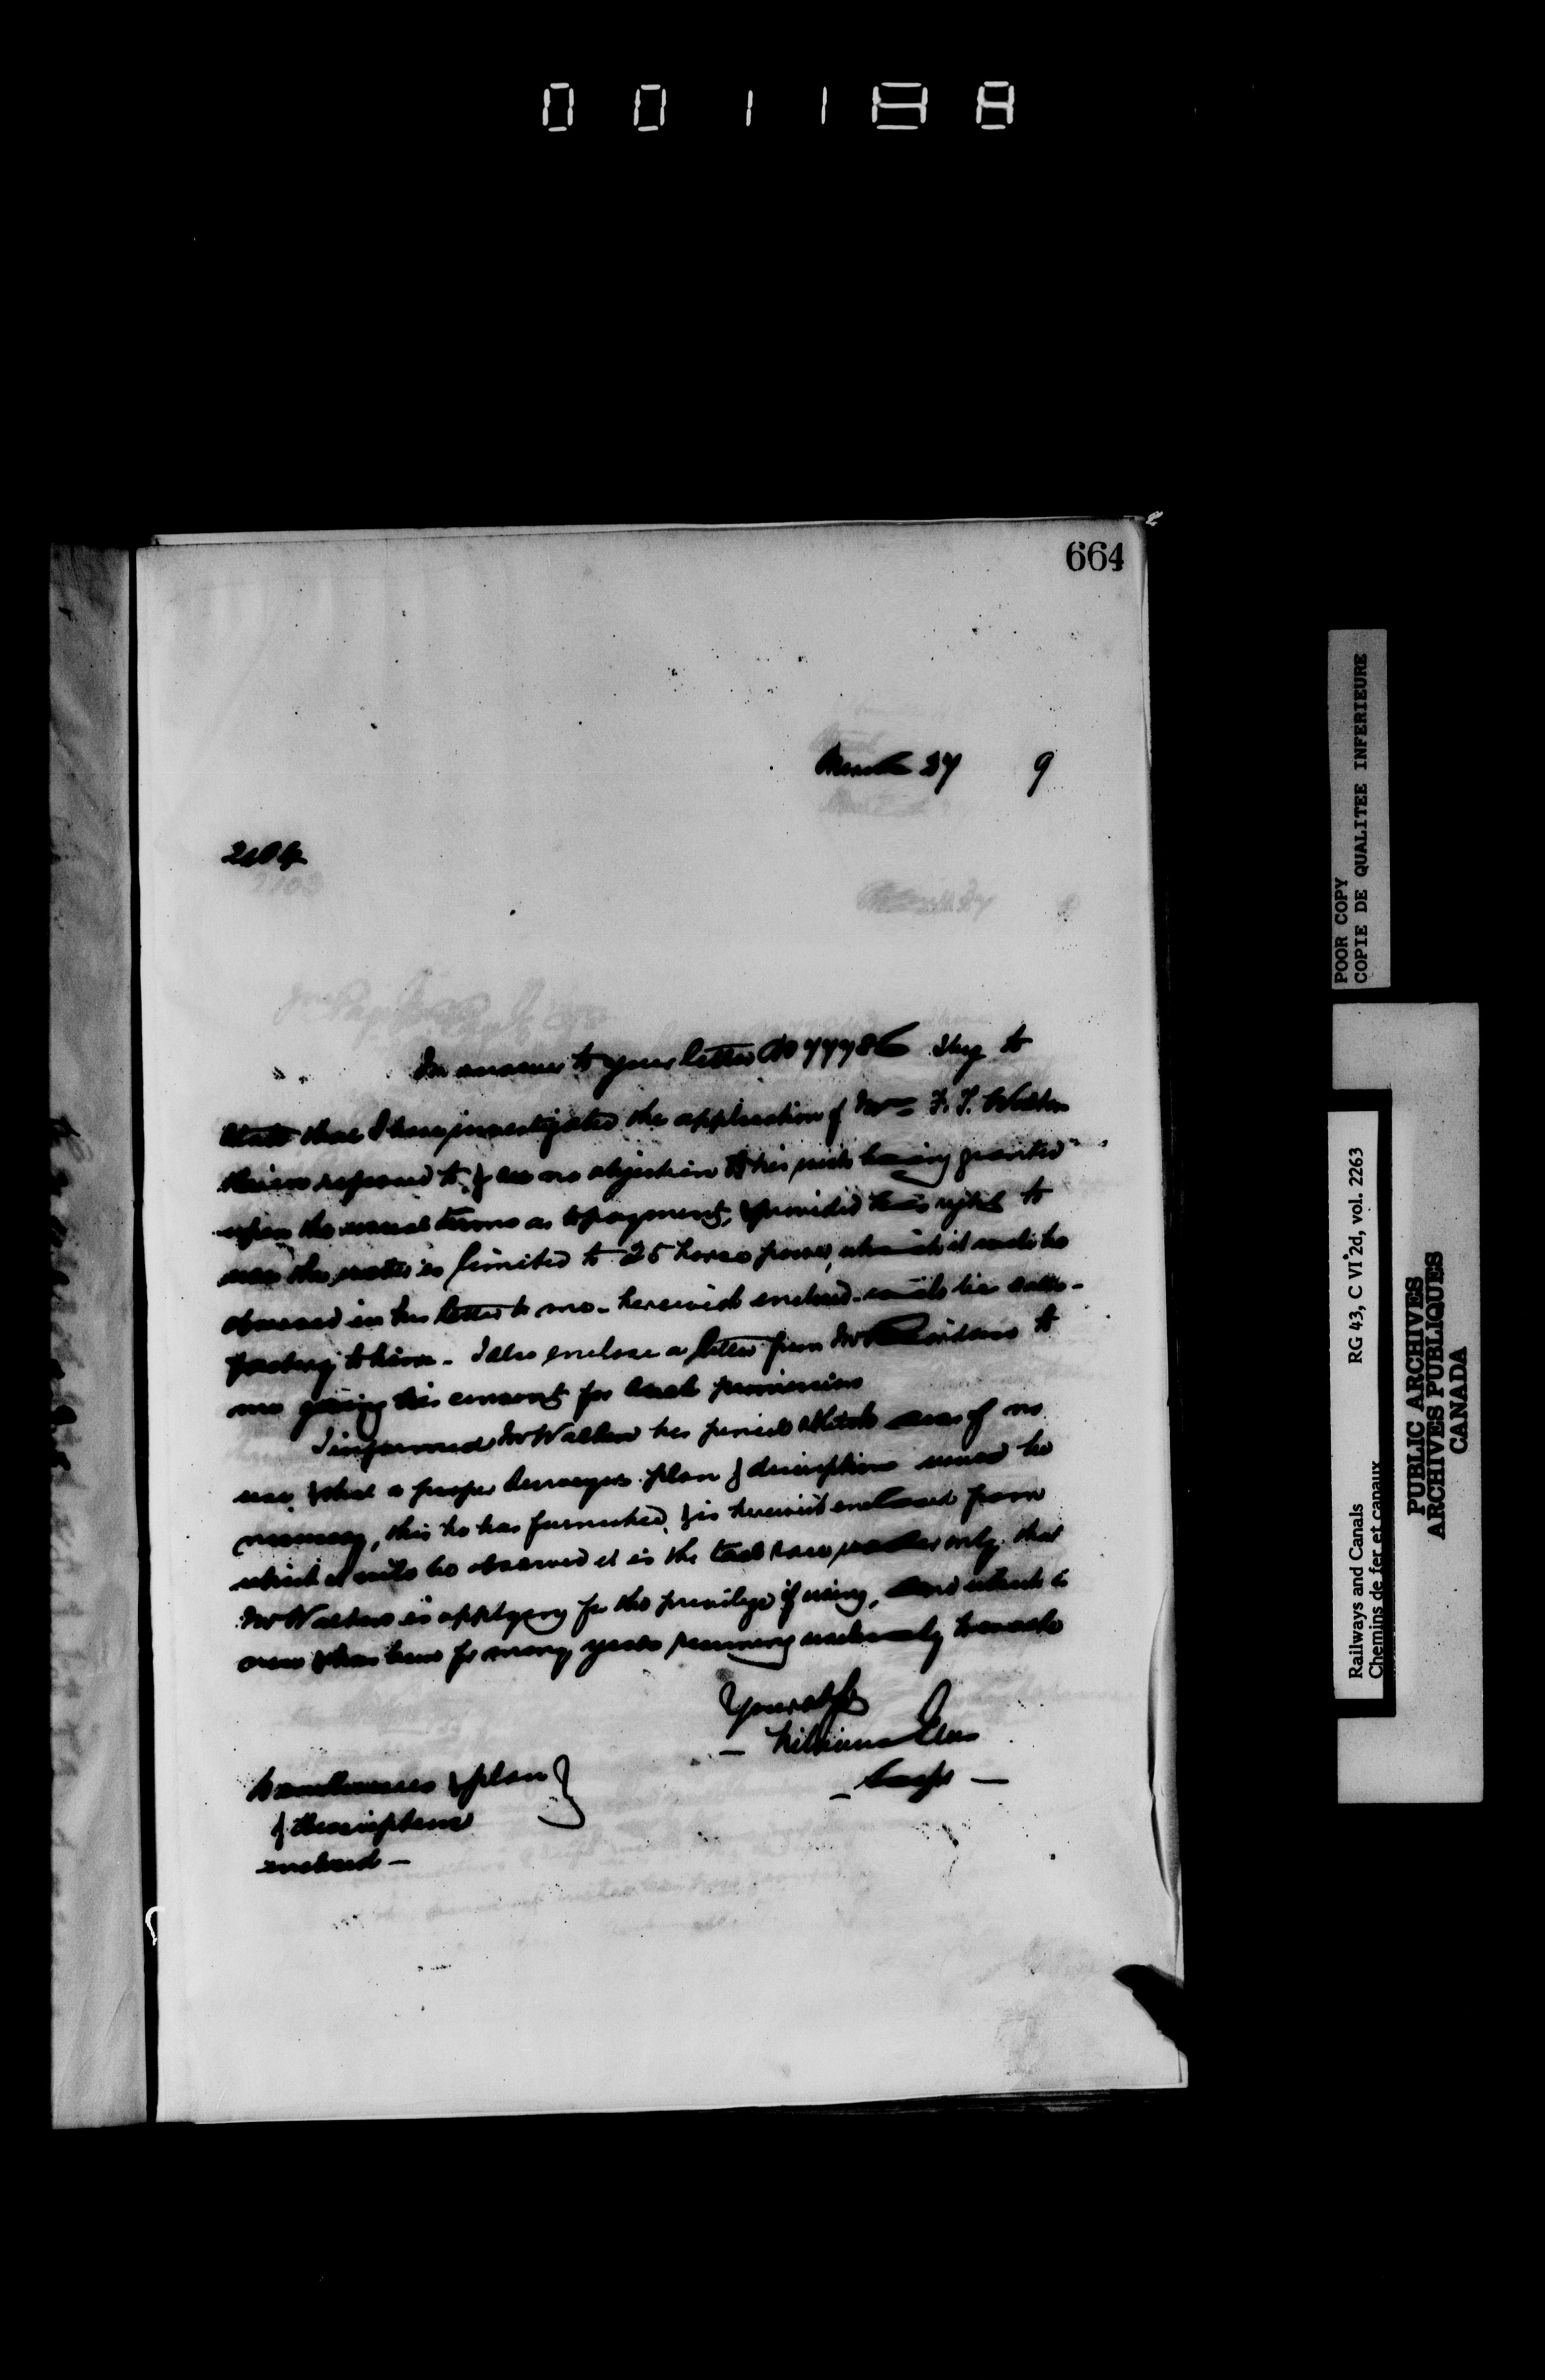 001188
664
March 27 9
2104
In answer to your letter No 77786 I beg to
state that I have investigated the application of Mr F. T. Walton
therein referred to & see no objection to his wish being granted
upon the usual terms as to payment, & provided his right to
use the water is limited to 25 horse power, which it will be
observed in his letter to me - herewith enclosed - will be satis-
factory to him - I also enclose a letter from Mr to
me giving his consent for such permission
I informed Mr Walton his pencil sketch was of no
use, & that a proper Surveyors plan & description would be
necessary, this he has furnished, & is herewith enclosed from
which it will be observed it is the tail race water only that
Mr Walton is applying for the privilege of using, and which is
now & has been for many years running uselessly to waste
Yours &c
William Ellis
Supt
& plan
& description
enclosed -
POOR COPY
COPIE DE QUALITEE INFERIEURE
Railways and Canals RG 43, C VI 2d, vol. 2263
Chemins de fer et canaux
PUBLIC ARCHIVES
ARCHIVES PUBLIQUES
CANADA